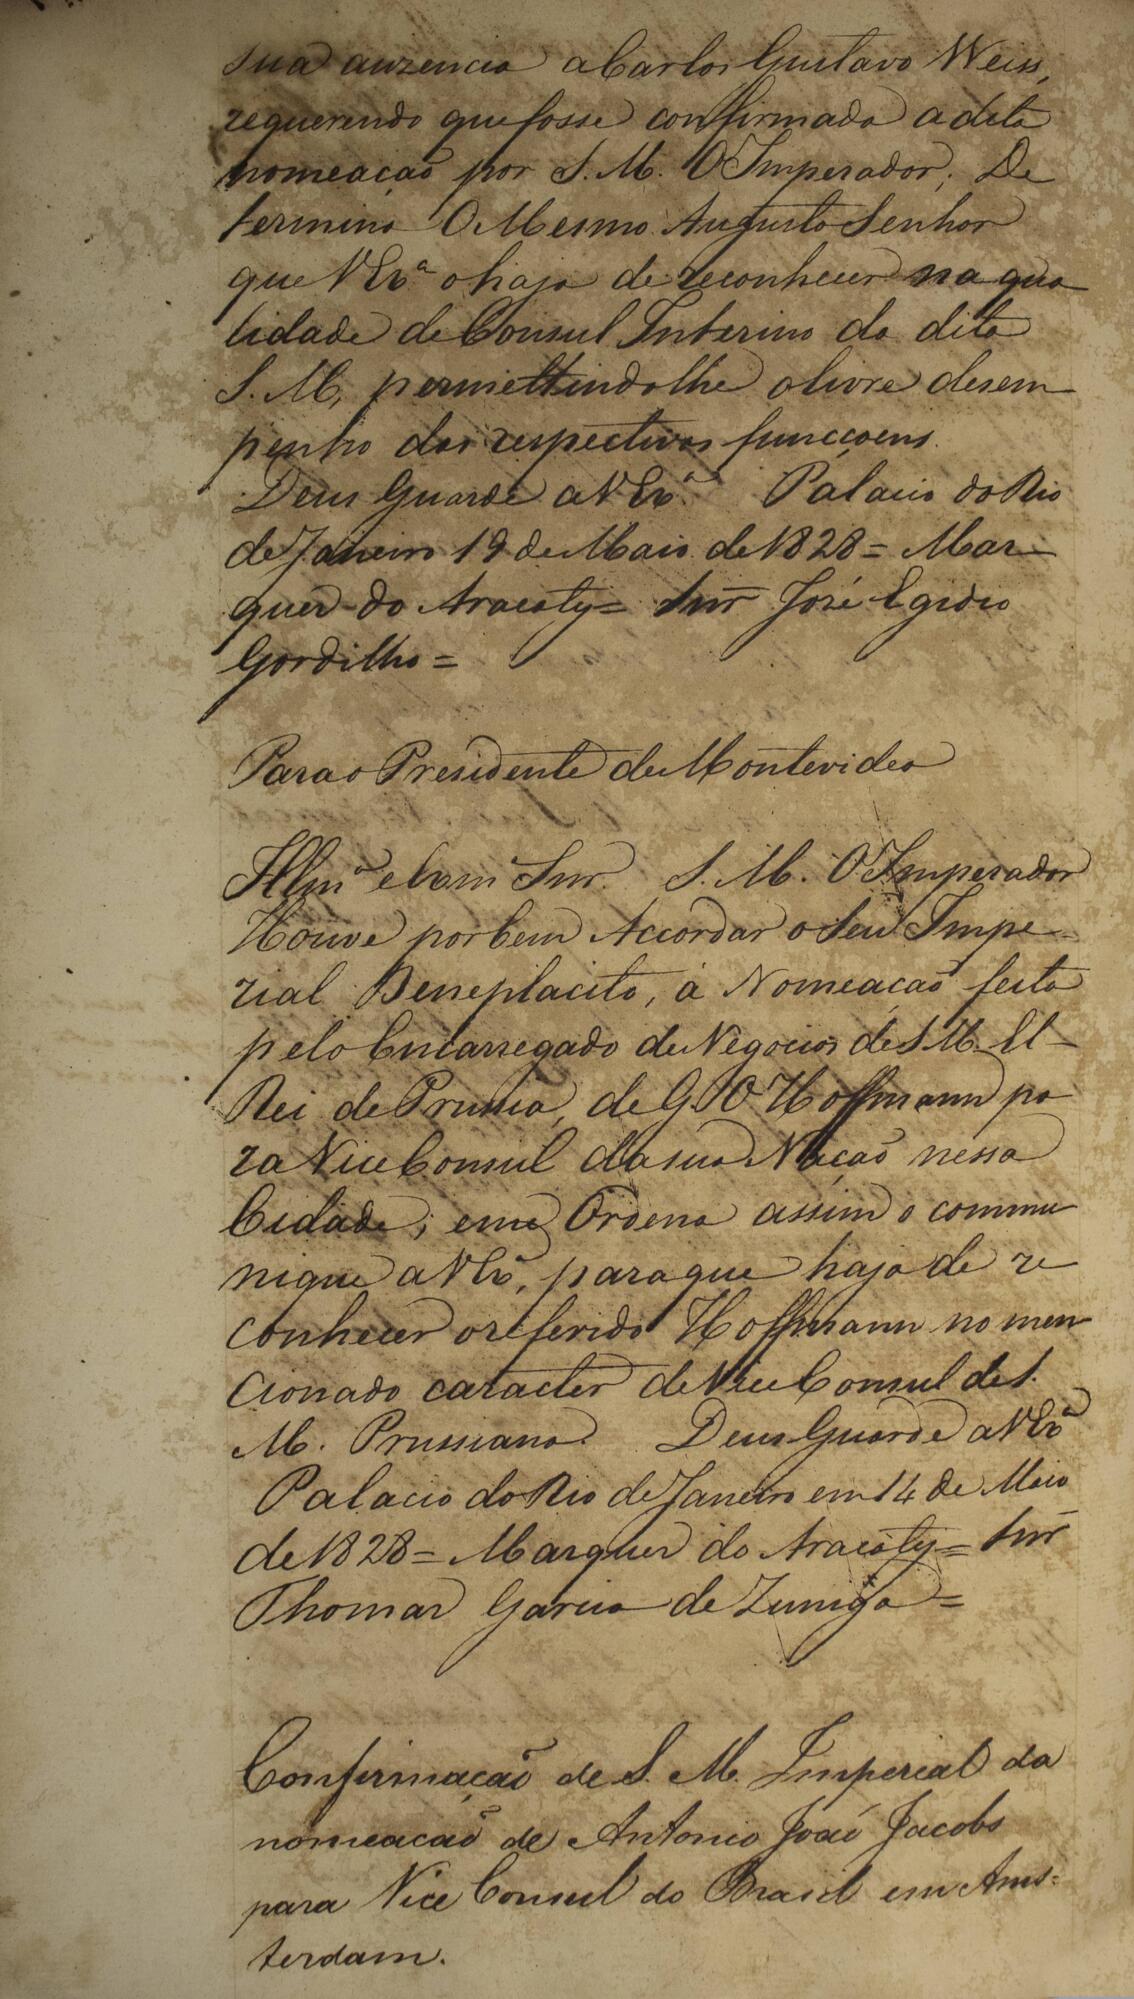 sua auzencia a Carlos Gustavo Weiss,
requerendo que fosse confirmada a dita
nomeação por S. M. O Imperador; De
termina O Mesmo Augusto Senhor
que V Exª o haja de reconhecer na qua
lidade de Consul Interino da dita
S. M, permettindolhe o livre desem-
penho das respectivas funccoens.
Deus Guarde a V Exª. Palacio do Rio
de Janeiro 19 de Maio de 1828 = Mar-
quez do Aracaty = Snr José Egidio
Gordilho =
Para o Presidente de Montevideo
Illmº e Exm Snr. S. M. O Imperador
Houve por bem Accordar o Seu Impe-
rial Beneplacito, á Nomeação feita
pelo Encarregado de Negocios de S M El-
Rei de Prussia, de G. O Hoffmann pa
ra Vice Consul da sua Nação nessa
Cidade; e me Ordena assim o commu
nique a V Exª, para que haja de re
conhecer o referido Hoffmann no men
cionado caracter de Vice Consul de S.
M. Prussiana. Deus Guarde a V Exª
Palacio do Rio de Janeiro em 14 de Maio
de 1828 = Marquez do Aracaty = Snr
Thomaz Garcia de Zuniga =
Confirmação de S. M. Imperial da
nomeacaõ de Antonio João Jacobs
para Vice Consul do Brasil em Ams-
terdam.